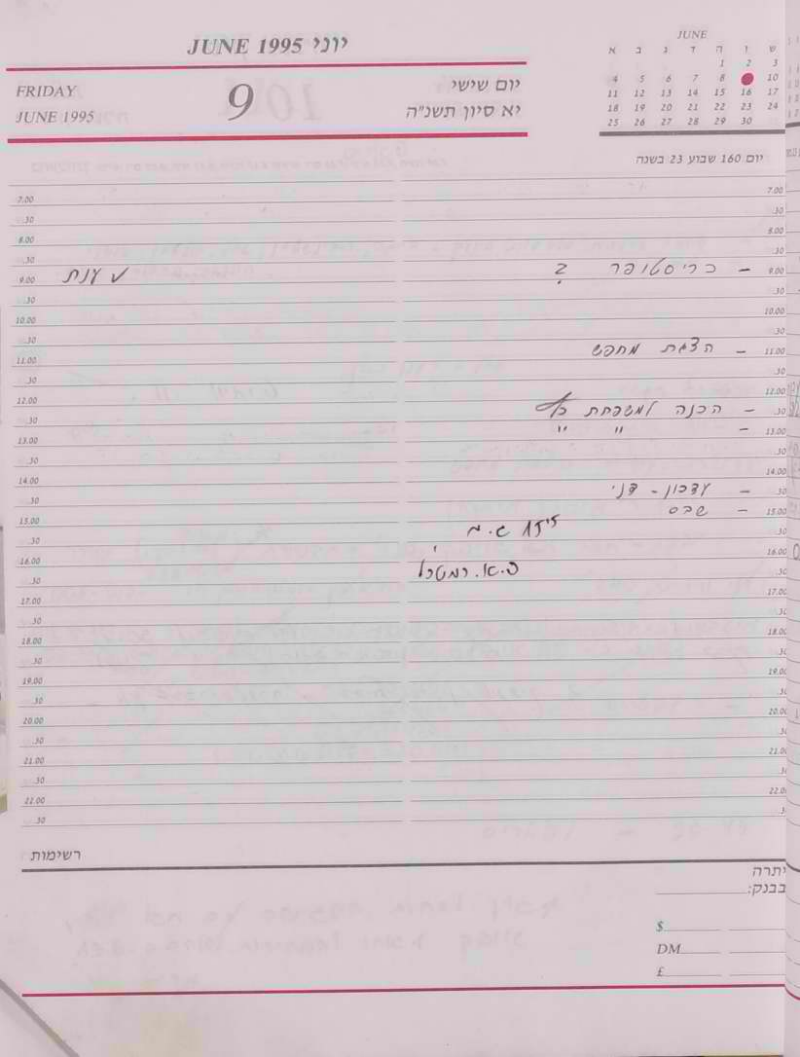 JUNE 1995 יוני
FRIDAY
JUNE 1995
9
יום שישי
יא סיון תשנ"ה
JUNE
א ב ג ד ה ו ש
1 2 3
4 5 6 7 8 10
11 12 13 14 15 16 17
18 19 20 21 22 23 24
25 26 27 28 29 30
יום 160 שבוע 23 בשנה
7.00 7.00
.30 .30
8.00 8.00
.30 .30
9.00 - כריסטופר ? ענת ✓ 9.00
.30 .30
10.00 10.00
.30 .30
11.00 - הצגת מחפש 11.00
.30 .30
12.00 12.00
.30 - הכנה למשפחת .30
13.00 - " " 13.00
.30 .30
14.00 14.00
.30 - עדכון - דני .30
15.00 - שבס 15.00
.30 .30
16.00 16.00
.30 .30
17.00 17.00
.30 .30
18.00 18.00
.30 .30
19.00 19.00
.30 .30
20.00 20.00
.30 .30
21.00 21.00
.30 .30
22.00 22.00
.30 .30
רשימות
יתרה
בבנק:
$
DM
£